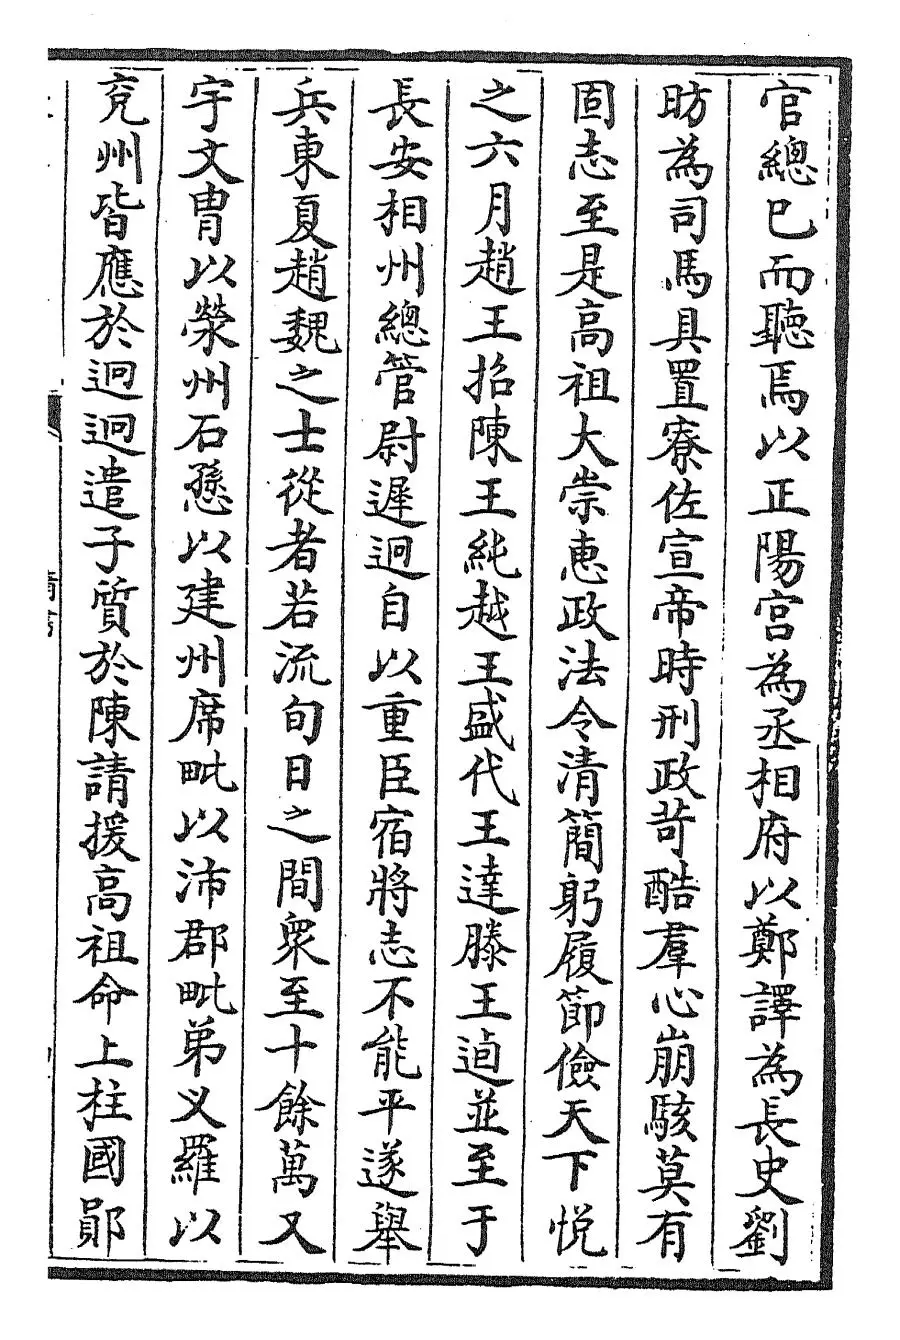 官總已而聽焉以正陽宫為丞相府以鄭譯為長史劉
昉為司馬具置寮佐宣帝時刑政苛酷羣心崩駭莫有
固志至是高祖大崇惠政法令清簡躬履節儉天下悦
之六月趙王招陳王純越王盛代王達滕王逌並至于
長安相州總管尉遲迥自以重臣宿將志不能平遂舉
兵東夏趙魏之士從者若流旬日之間衆至十餘萬又
宇文胄以滎州石愻以建州席毗以沛郡毗弟义羅以
兖州皆應於迥迥遣子質於陳請援高祖命上柱國鄖